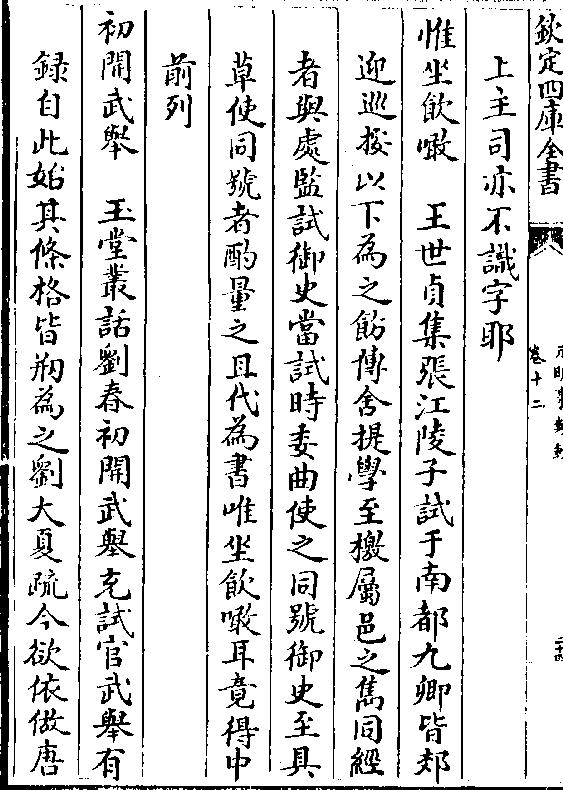 欽定四庫全書
卷十二
上主司亦不識字耶
惟坐飲噉　王世貞集張江陵子試于南都九卿皆郊
迎巡按以下為之飭傳舍提學至檄屬邑之雋同經
者與處監試御史當試時委曲使之同號御史至具
草使同號者酌量之且代為書唯坐飲噉耳竟得中
前列
初開武舉　玉堂叢話劉春初開武舉充試官武舉有
録自此始其條格皆剏為之劉大夏疏今欲依倣唐